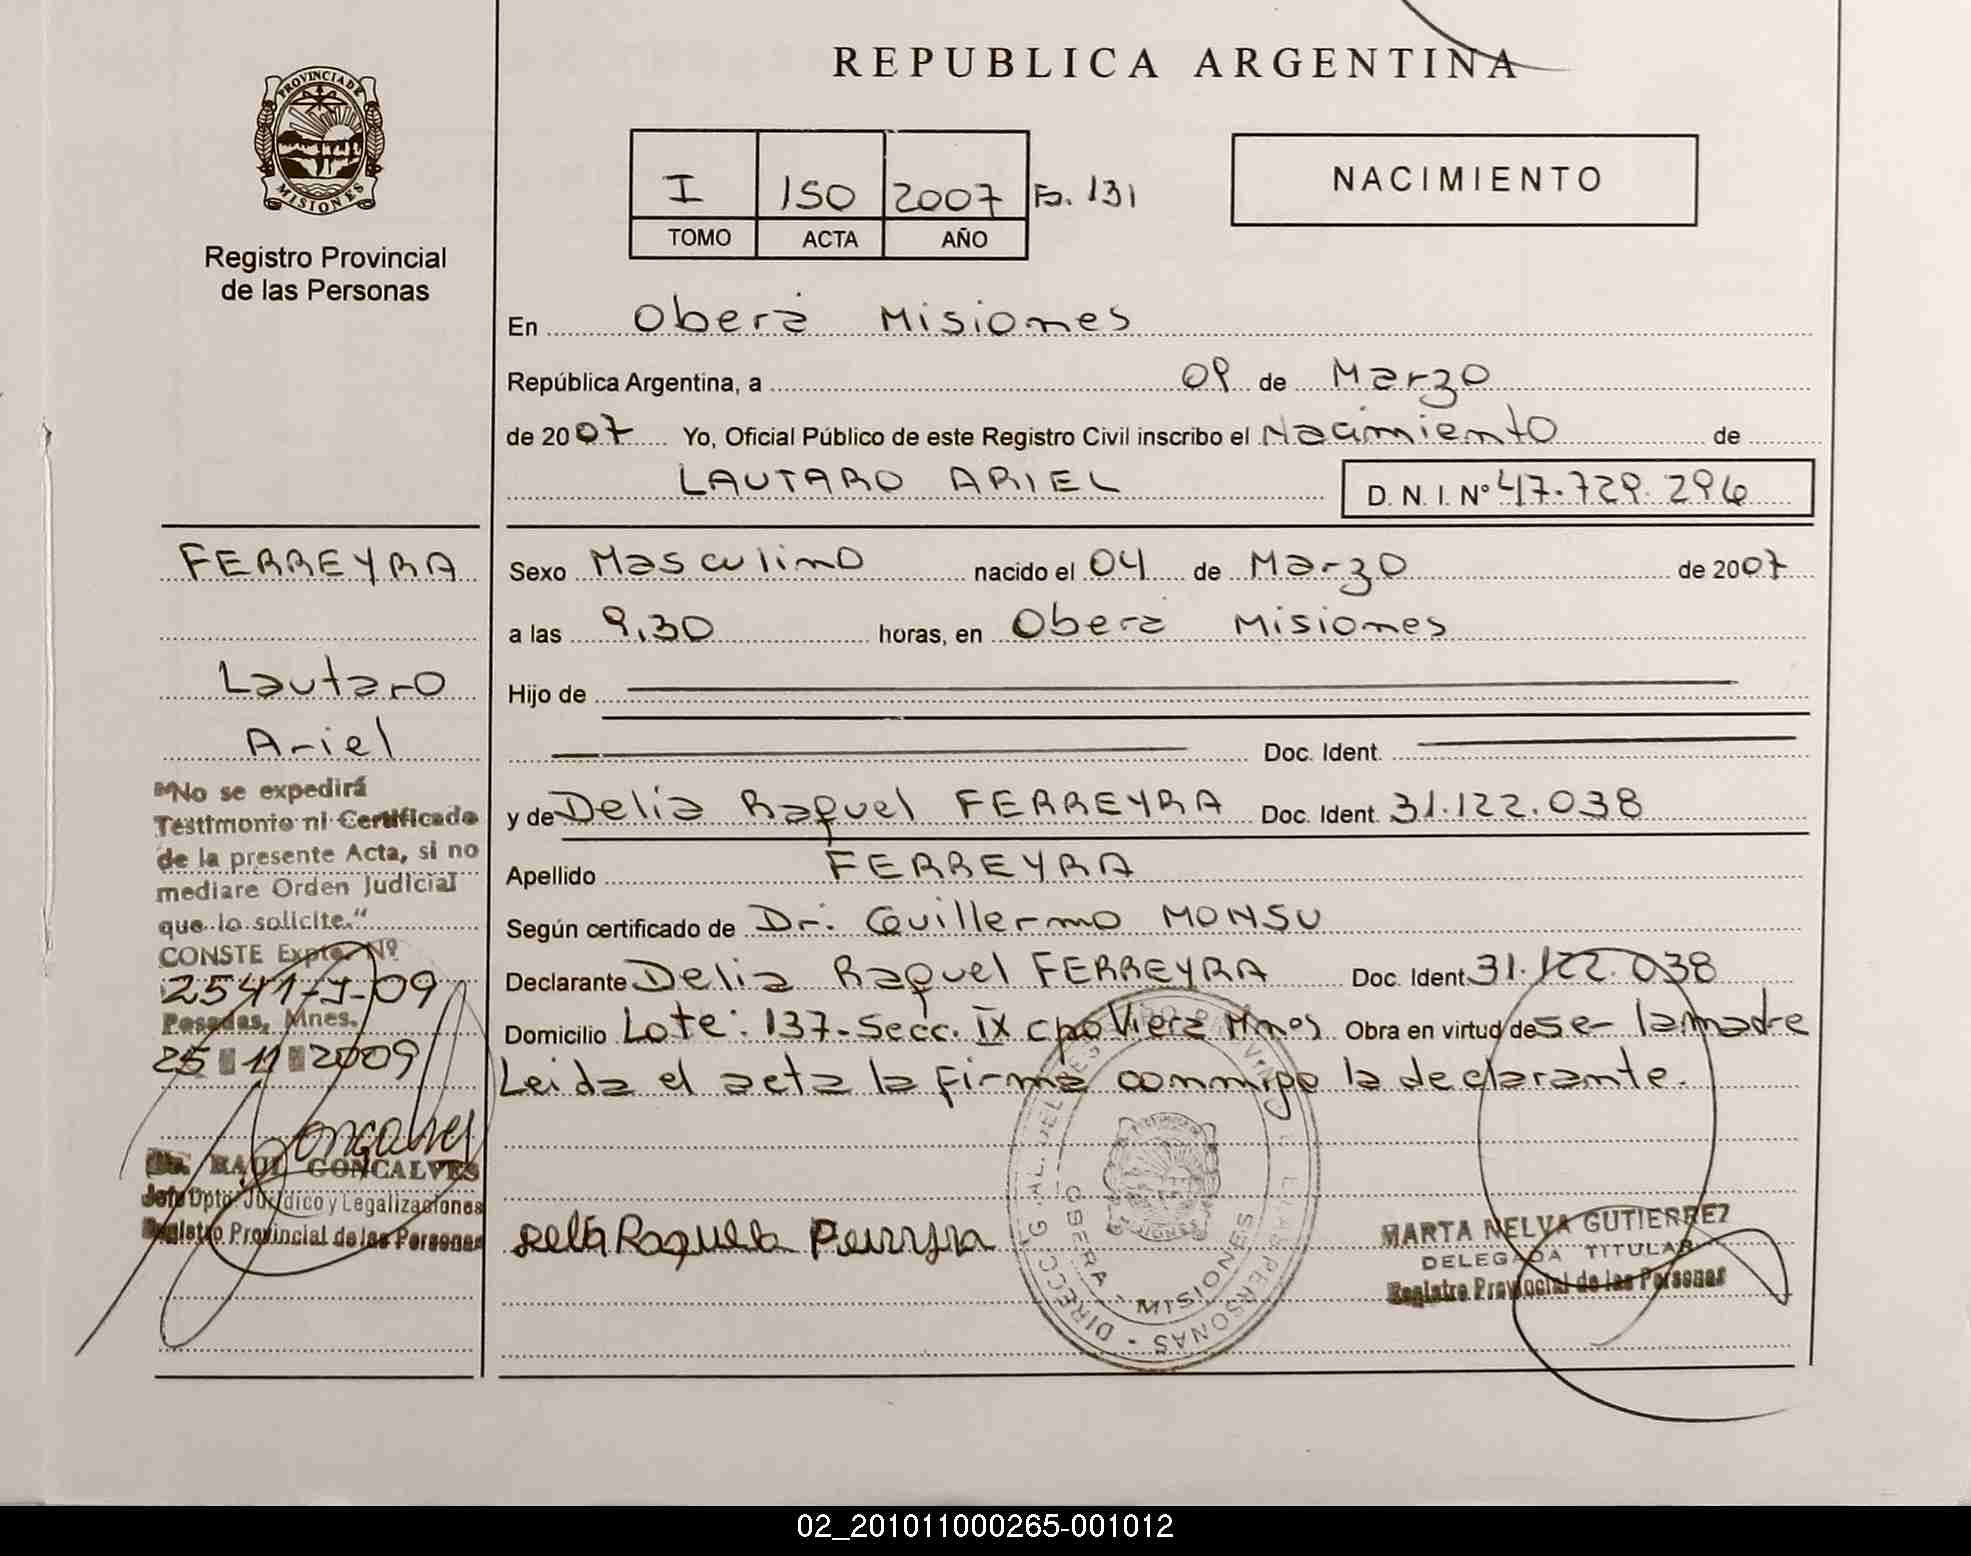 REPUBLICA ARGENTINA
PROVINCIA DE MISIONES
Registro Provincial
de las Personas
I 150 2007 Fo. 131
TOMO ACTA AÑO
NACIMIENTO
En Oberá Misiones
República Argentina, a 09 de Marzo
de 2007 Yo, Oficial Público de este Registro Civil inscribo el Nacimiento de
LAUTARO ARIEL D. N. I. Nº 47.729.296
FERREYRA
Lautaro
Ariel
"No se expedirá
Testimonio ni Certificado
de la presente Acta, si no
mediare Orden Judicial
que lo solicite."
CONSTE Expte. Nº
2541-J-09
Posadas, Mnes.
25 11 2009
Goncalves
Dr. RAUL GONCALVES
Jefe Dpto. Jurídico y Legalizaciones
Registro Provincial de las Personas
Sexo Masculino nacido el 04 de Marzo de 2007
a las 9,30 horas, en Oberá Misiones
Hijo de
Doc. Ident.
y de Delia Raquel FERREYRA Doc. Ident. 31.122.038
Apellido FERREYRA
Según certificado de Dr. Guillermo MONSU
Declarante Delia Raquel FERREYRA Doc. Ident 31.122.038
Domicilio Lote: 137-Secc. IX cpo Viera Mnes Obra en virtud de ser la madre
Leida el acta la firma conmigo la declarante.
MARTA NELVA GUTIERREZ
DELEGADA TITULAR
Registro Provincial de las Personas
DIRECC. GRAL. DEL REGISTRO PROVINCIAL DE LAS PERSONAS -
OBERA - MISIONES
02_201011000265-001012